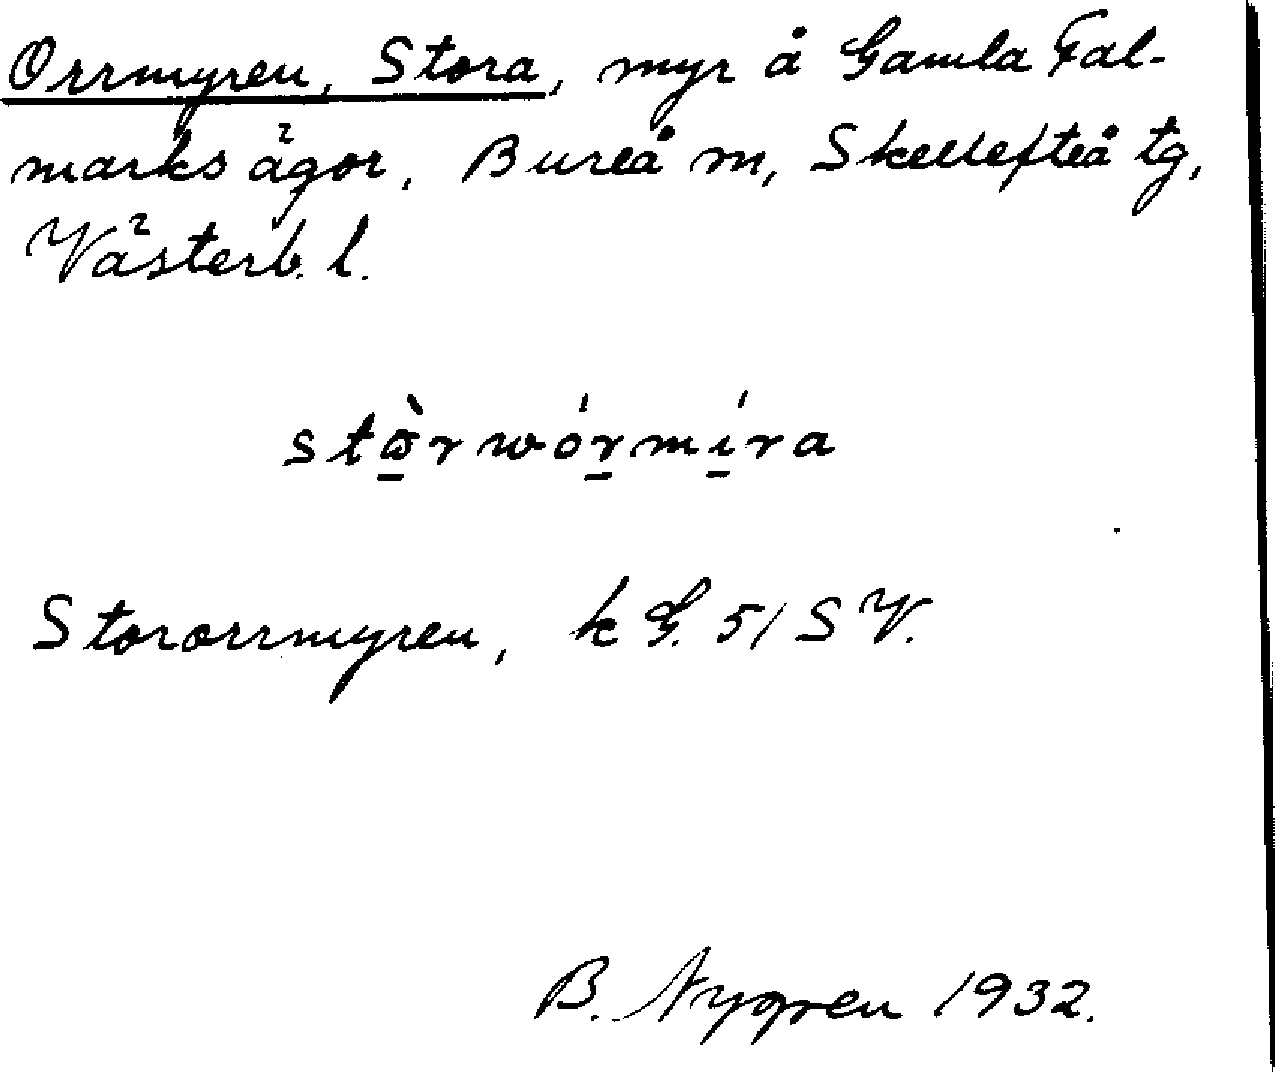 Orrmyren, Stora, myr å Gamla Fal-
marks ägor, Bureå m, Skellefteå tg,
Västerb. l.
stɷ̀rwórmíra
Stororrmyren, kG. 51 SV.
B. Nygren 1932.